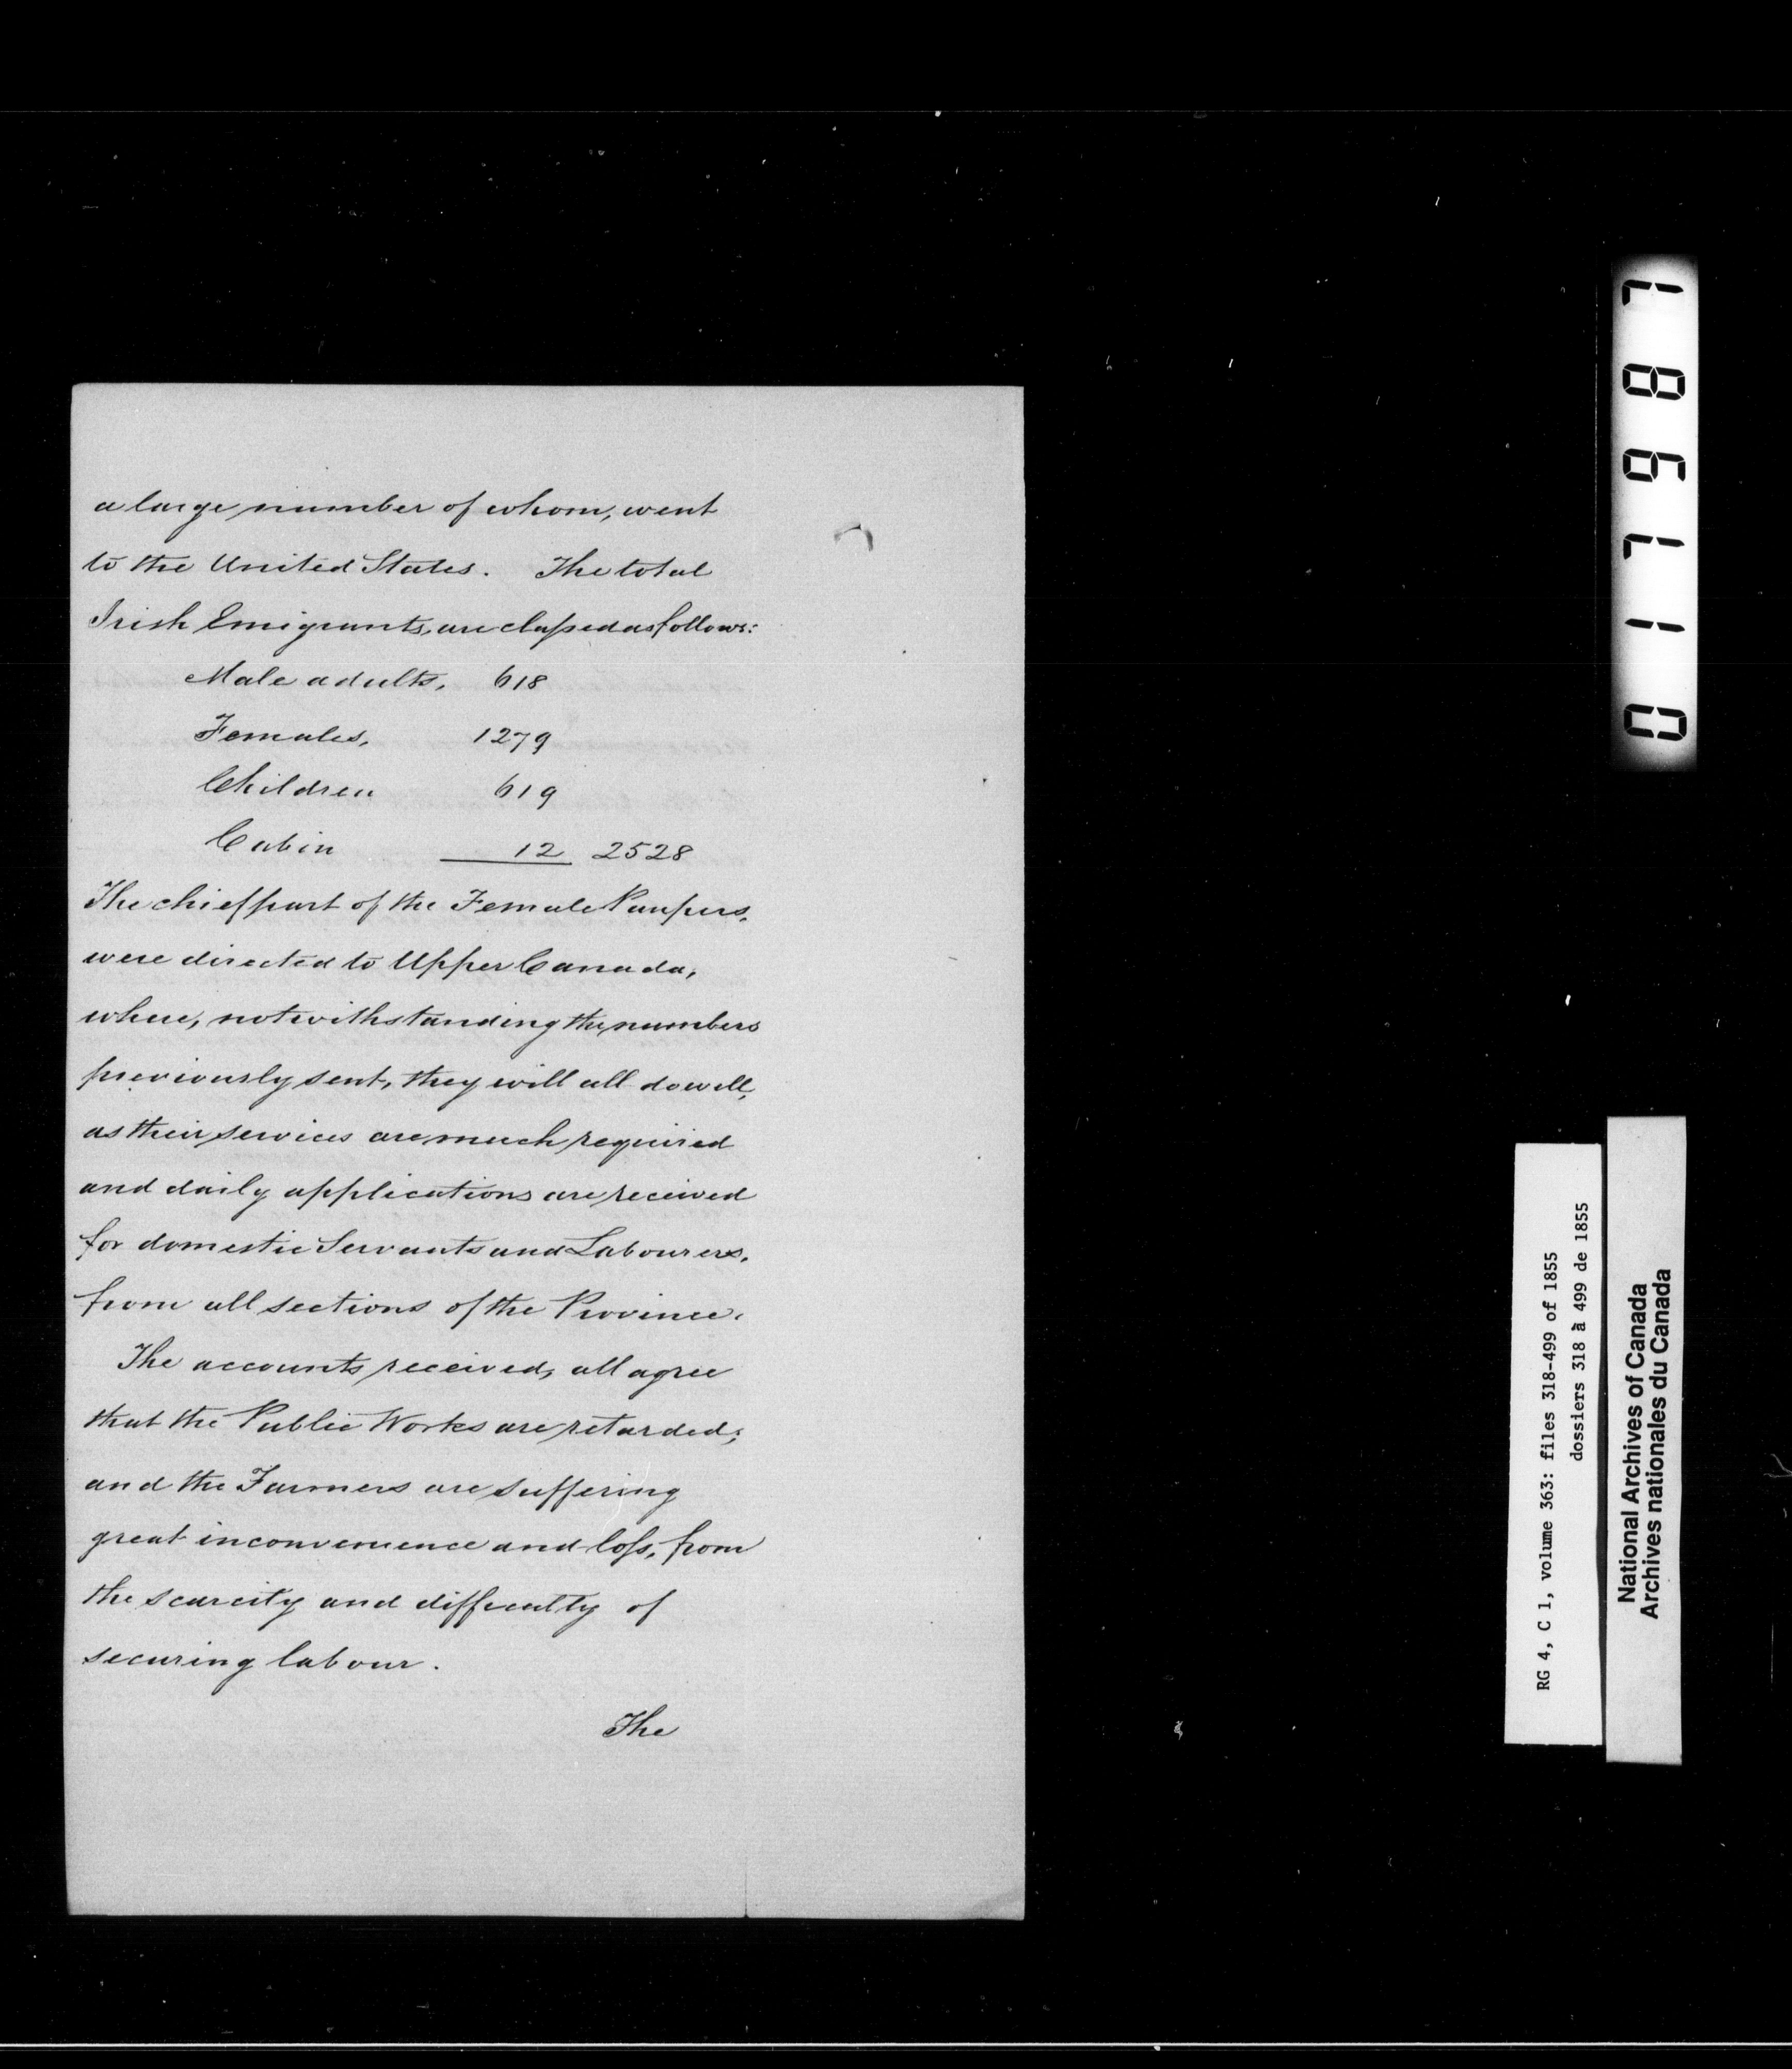 a large number of whom, went
to the United States. The total
Irish Emigrants, are claſsed as follows:
Male adults, 618
Females, 1279
Children 619
Cabin 12 2528
The chief part of the Female Paupers,
were directed to Upper Canada,
where, notwithstanding the numbers
previously sent, they will all do well,
as their services are much required
and daily applications are received
for domestic Servants and Labourers,
from all sections of the Province.
The accounts received, all agree
that the Public Works are retarded;
and the Farmers are suffering
great inconvenience and loſs, from
the scarcity and difficulty of
securing labour.
The
011967
RG 4, C 1, volume 363: files 318-499 of 1855
dossiers 318 à 499 de 1855
National Archives of Canada
Archives nationales du Canada